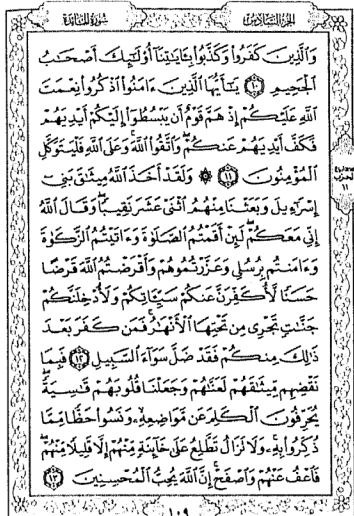 الجزء السادس سورة المائدة
وَالَّذِينَ كَفَرُوا وَكَذَّبُوا بِـَٔايَـٰتِنَآ أُو۟لَـٰٓئِكَ أَصْحَـٰبُ
الْجَحِيمِ ١٠ يَـٰٓأَيُّهَا الَّذِينَ ءَامَنُوا اذْكُرُوا نِعْمَتَ
اللَّهِ عَلَيْكُمْ إِذْ هَمَّ قَوْمٌ أَن يَبْسُطُوٓا إِلَيْكُمْ أَيْدِيَهُمْ
فَكَفَّ أَيْدِيَهُمْ عَنكُمْ وَاتَّقُوا اللَّهَ وَعَلَى اللَّهِ فَلْيَتَوَكَّلِ
الْمُؤْمِنُونَ ١١ ۞ وَلَقَدْ أَخَذَ اللَّهُ مِيثَـٰقَ بَنِىٓ
إِسْرَٰٓءِيلَ وَبَعَثْنَا مِنْهُمُ اثْنَىْ عَشَرَ نَقِيبًا وَقَالَ اللَّهُ
إِنِّى مَعَكُمْ لَئِنْ أَقَمْتُمُ الصَّلَوٰةَ وَءَاتَيْتُمُ الزَّكَوٰةَ
وَءَامَنتُم بِرُسُلِى وَعَزَّرْتُمُوهُمْ وَأَقْرَضْتُمُ اللَّهَ قَرْضًا
حَسَنًا لَّأُكَفِّرَنَّ عَنكُمْ سَيِّـَٔاتِكُمْ وَلَأُدْخِلَنَّكُمْ
جَنَّـٰتٍ تَجْرِى مِن تَحْتِهَا الْأَنْهَـٰرُ فَمَن كَفَرَ بَعْدَ
ذَٰلِكَ مِنكُمْ فَقَدْ ضَلَّ سَوَآءَ السَّبِيلِ ١٢ فَبِمَا
نَقْضِهِم مِّيثَـٰقَهُمْ لَعَنَّـٰهُمْ وَجَعَلْنَا قُلُوبَهُمْ قَـٰسِيَةً
يُحَرِّفُونَ الْكَلِمَ عَن مَّوَاضِعِهِۦ وَنَسُوا حَظًّا مِّمَّا
ذُكِّرُوا بِهِۦ وَلَا تَزَالُ تَطَّلِعُ عَلَىٰ خَآئِنَةٍ مِّنْهُمْ إِلَّا قَلِيلًا مِّنْهُمْ
فَاعْفُ عَنْهُمْ وَاصْفَحْ إِنَّ اللَّهَ يُحِبُّ الْمُحْسِنِينَ ١٣
١٠٩